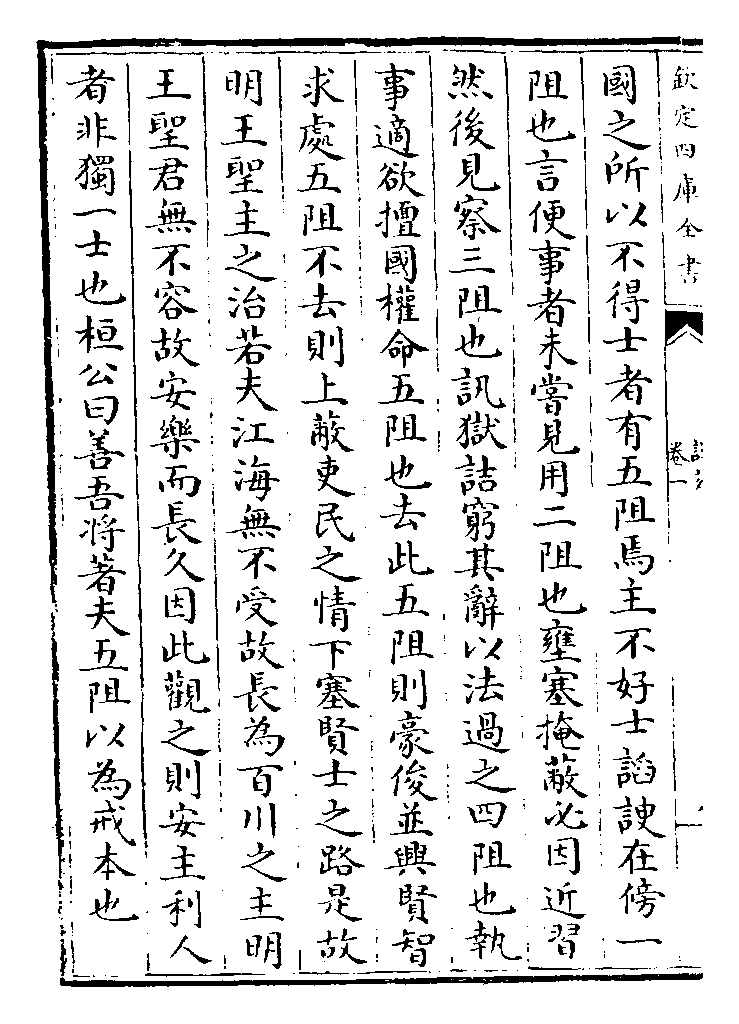 欽定四庫全書
卷一
國之所以不得士者有五阻焉主不好士謟諛在傍一
阻也言便事者未嘗見用二阻也壅塞掩蔽必因近習
然後見察三阻也訊獄詰窮其辭以法過之四阻也執
事適欲擅國權命五阻也去此五阻則豪俊並興賢智
求處五阻不去則上蔽吏民之情下塞賢士之路是故
明王聖主之治若夫江海無不受故長為百川之主明
王聖君無不容故安樂而長久因此觀之則安主利人
者非獨一士也桓公曰善吾將著夫五阻以為戒本也